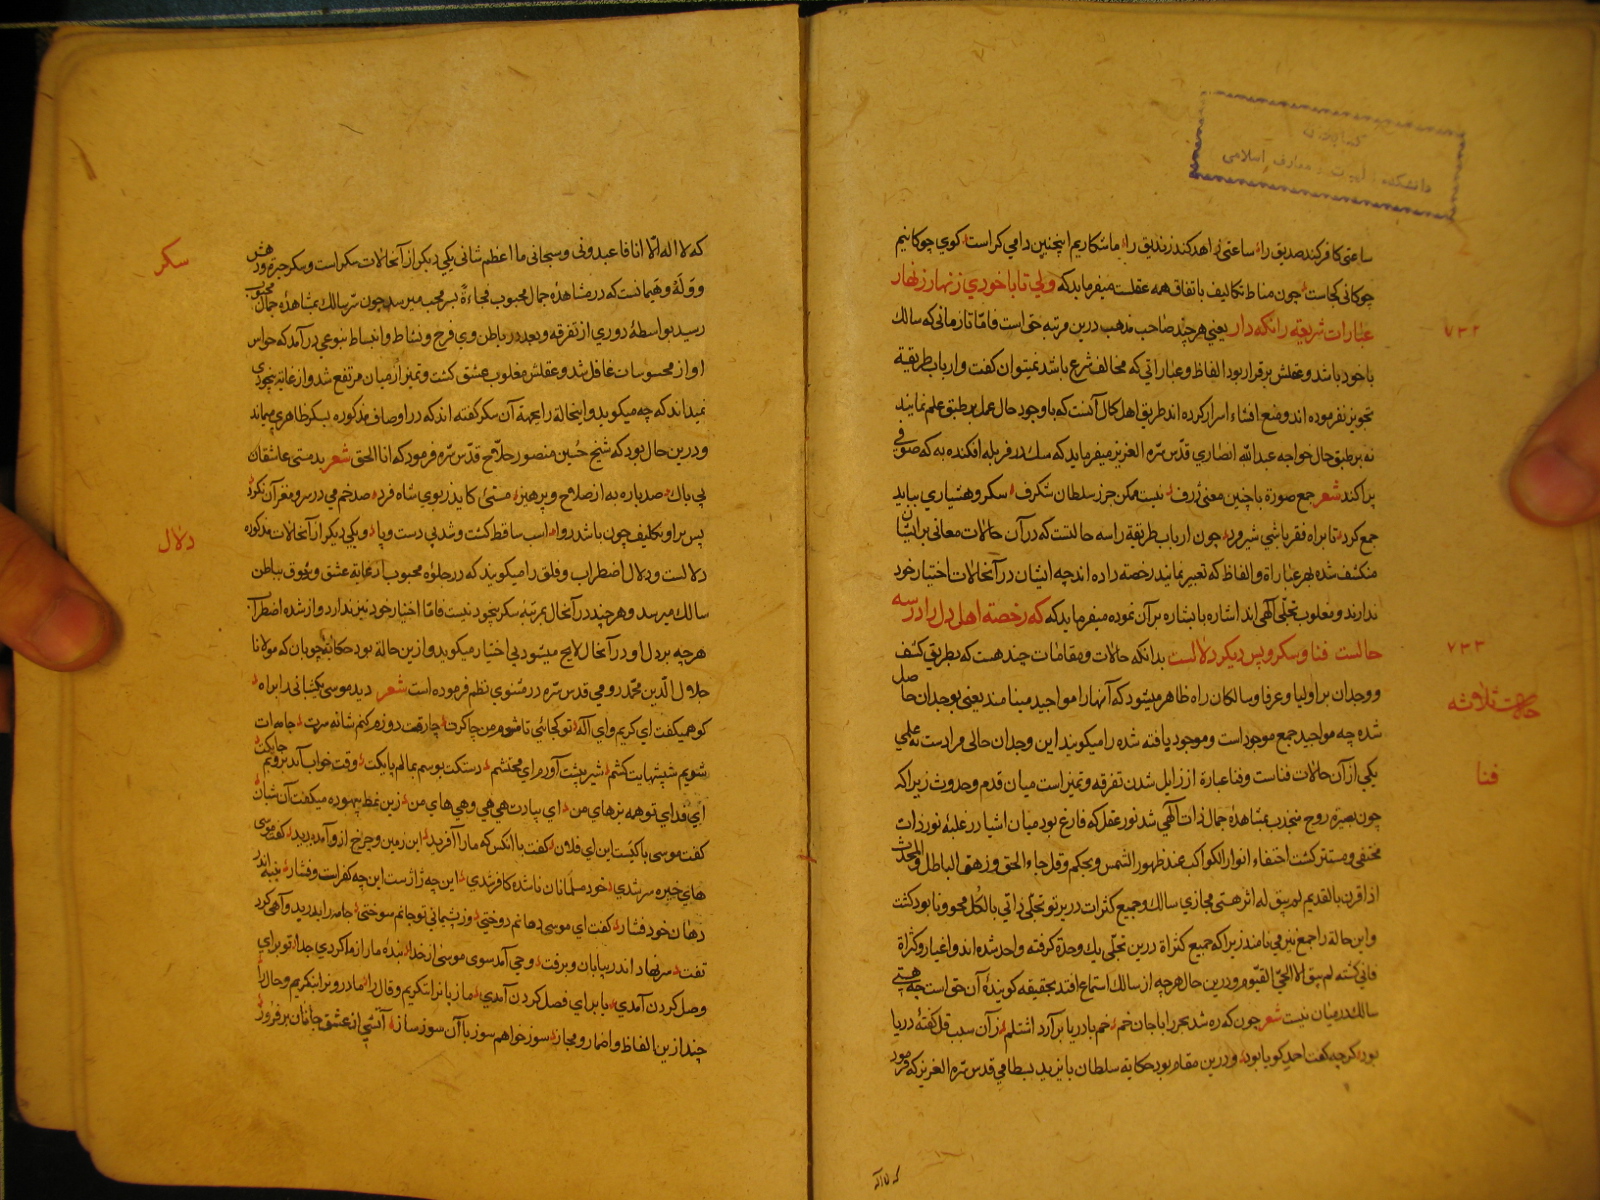 کتابخانه
دانشکده الهیات و معارف اسلامی
ساعتی کافر کند صدیق را ساعتی زاهد کند زندیق را ما شکاریم اینچنین دامی کراست کوی چوکانیم
چوکانی کجاست چون مناط تکالیف باتفاق همه عقلست میفرماید که ولی تا با خودی زنهار زنهار
عبارات شریعة را نکه دار یعنی هر چند صاحب مذهب درین مرتبه حق است فامّا تا زمانی که سالک
با خود باشد و عقلش برقرار بود الفاظ و عباراتی که مخالف شرع باشد نمیتوان کفت و ارباب طریقة
تجویز نفرموده اند و منع افشاء اسرار کرده اند طریق اهل کمال آنست که با وجود حال عمل بر طبق علم نمایند
نه بر طبق حال خواجه عبد اللّه انصاری قدّس سّره العزیز میفرماید که سک در مزبله افکنده به که صوفی
پراکند شعر جمع صورة با چنین معنئ ژرف نیست ممکن جز ز سلطان شکرف سکر و هشیاری بباید
جمع کرد تا براه فقر باشی شیر مرد چون ارباب طریقة را سه حالتست که در آن حالات معانی بر ایشان
منکشف شده بهر عباراة و الفاظ که تعبیر نمایند رخصة داده اند چه ایشان در آنحالات اختیار خود
ندارند و مغلوب تجلّی آلهی اند اشاره باشاره بر آن نموده میفرماید که که رخصة اهل دل را در سه
حالست فنا و سکر و پس دیکر دلالست بدانکه حالات و مقامات چند هست که بطریق کشف
و وجدان بر اولیا و عرفا و سالکان راه ظاهر میشود که آنها را مواجید مینامند یعنی بوجدان حاصل
شده چه مواجید جمع موجود است و موجود یافته شده را میکویند این وجدان حالی مراد ست نه علمی
یکی از آن حالات فناست و فنا عبارة از زایل شدن تفرقه و تمیز است میان قدم و حدوث زیرا که
چون بصیرة روح منجذب بمشاهدۀ جمال ذات آلهی شد نور عقل که فارغ بود میان اشیا در غلبۀ نور ذات
مختفی و مستتر کشت اختفاء انوار الکواکب عند ظهور الشمس و بحکم و قل جاء الحق و زهق الباطل و المحدث
اذا قرن بالقدیم لم یبق له اثر هستی مجازی سالک و جمیع کثرات در پرتو تجلّی ذاتی بالکل محو و نابود کشت
و این حالة را جمع نیز می نامند زیرا که جمیع کثراة درین تجلّی یک وحدة کرفته و احد شده اند و اغیار و کثراة
فانی کشته لم یبق الا الحیّ القیّوم و درین حال هر چه از سالک استماع افتد بحقیقه کویندۀ آن حق است چه هستی
سالک در میان نیست شعر چون که ره شد بحر را با جان خم خم با دریا بر آرد اشتلم ز آن سبب قل کفتۀ دریا
بود کر چه کفت احمد کویا بود و درین مقام بود حکایة سلطان بایزید بسطامی قدس سّره العزیز که فرمود
که لا اله
۷۳۲
۷۳۳
حالات ثلاثه
فنا
که لا اله الّا انا فاعبدونی و سبحانی ما اعظم شانی یکی دیکر از آنحالات سکر است و سکر حیرة و دهش
و وَلَهْ و هَیَمانست که در مشاهدۀ جمال محبوب فجاءةً بسر محب میرسد چون سّر سالک بمشاهدۀ جمال محبوب
رسید بواسطۀ دوری از تفرقه و بعد در باطن وی فرح و نشاط و انبساط بنوعی در آمد که حواس
او از محسوسات غافل شد و عقلش مغلوب عشق کشت و تمیز از میان مرتفع شد و از غایة بیخودی
نمیداند که چه میکوید و اینحالة را بجهة آن سکر کفته اند که در اوصاف مذکوره بسکر ظاهری میماند
و درین حال بود که شیخ حُسین منصور حلّاج قدّس سّره فرمود که انا الحق شعر بد مستی عاشقان
بی باک صد باره به از صلاح و پرهیز مستئ کاید ز بوی شاه فرد صد خم می در سر و مغز آن نکرد
پس بر او تکلیف چون باشد روا اسب ساقط کشت و شد بی دست و پا و یکی دیکر از آنحالات مذکوره
دلالست و دلال اضطراب و قلق را میکویند که در جلوۀ محبوب از غایة عشق و ذوق بباطن
سالک میرسد و هر چند در آنحال بمرتبۀ سکر بیخود نیست فامّا اختیار خود نیز ندارد و از شدة اضطراب
هر چه بر دل او در آنحال لایح میشود بی اختیار میکوید و از ین حالة بود حکایة چوپان که مولانا
جلال الّدین محّمد رومی قدس سّره در مثنوی نظم فرموده است شعر دید موسی یکشبانی را براه
کو همیکفت ای کریم و ای آله تو کجائی تا شوم من چاکرت چارقت دوزم کنم شانه سرت جامه ات
شویم شپشهایت کشم شیر پیشت آورم ای محتشم دستکت بوسم بمالم پایکت وقت خواب آید بروبم جایکت
ای فدای تو همه بزهای من ای بیادت هی هی و هی های من زین نمط بیهوده میکفت آن شبان
کفت موسی با کیست این ای فلان کفت با آنکس که ما را آفرید این زمین و چرخ از و آمد پدید کفت موسی
های خیره سر شدی خود مسلمان ناشده کافر شدی این چه ژاژست این چه کفر است و فشار پنبۀ اندر
دهان خود فشار کفت ای موسی دهانم دوختی و ز پشیمانی تو جانم سوختی جامه را بدرید و آهی کرد
تفت سر نهاد اندر بیابان و برفت وحی آمد سوی موسی از خدا بندۀ ما را ز ما کردی جدا تو برای
وصل کردن آمدی یا برای فصل کردن آمدی ما زبانرا ننکریم و قال را ما درونرا بنکریم و حال را
چند ازین الفاظ و اضمار و مجاز سوز خواهم سوز با آن سوز ساز آتشی از عشق جانان بر فروز
سکر
دلال